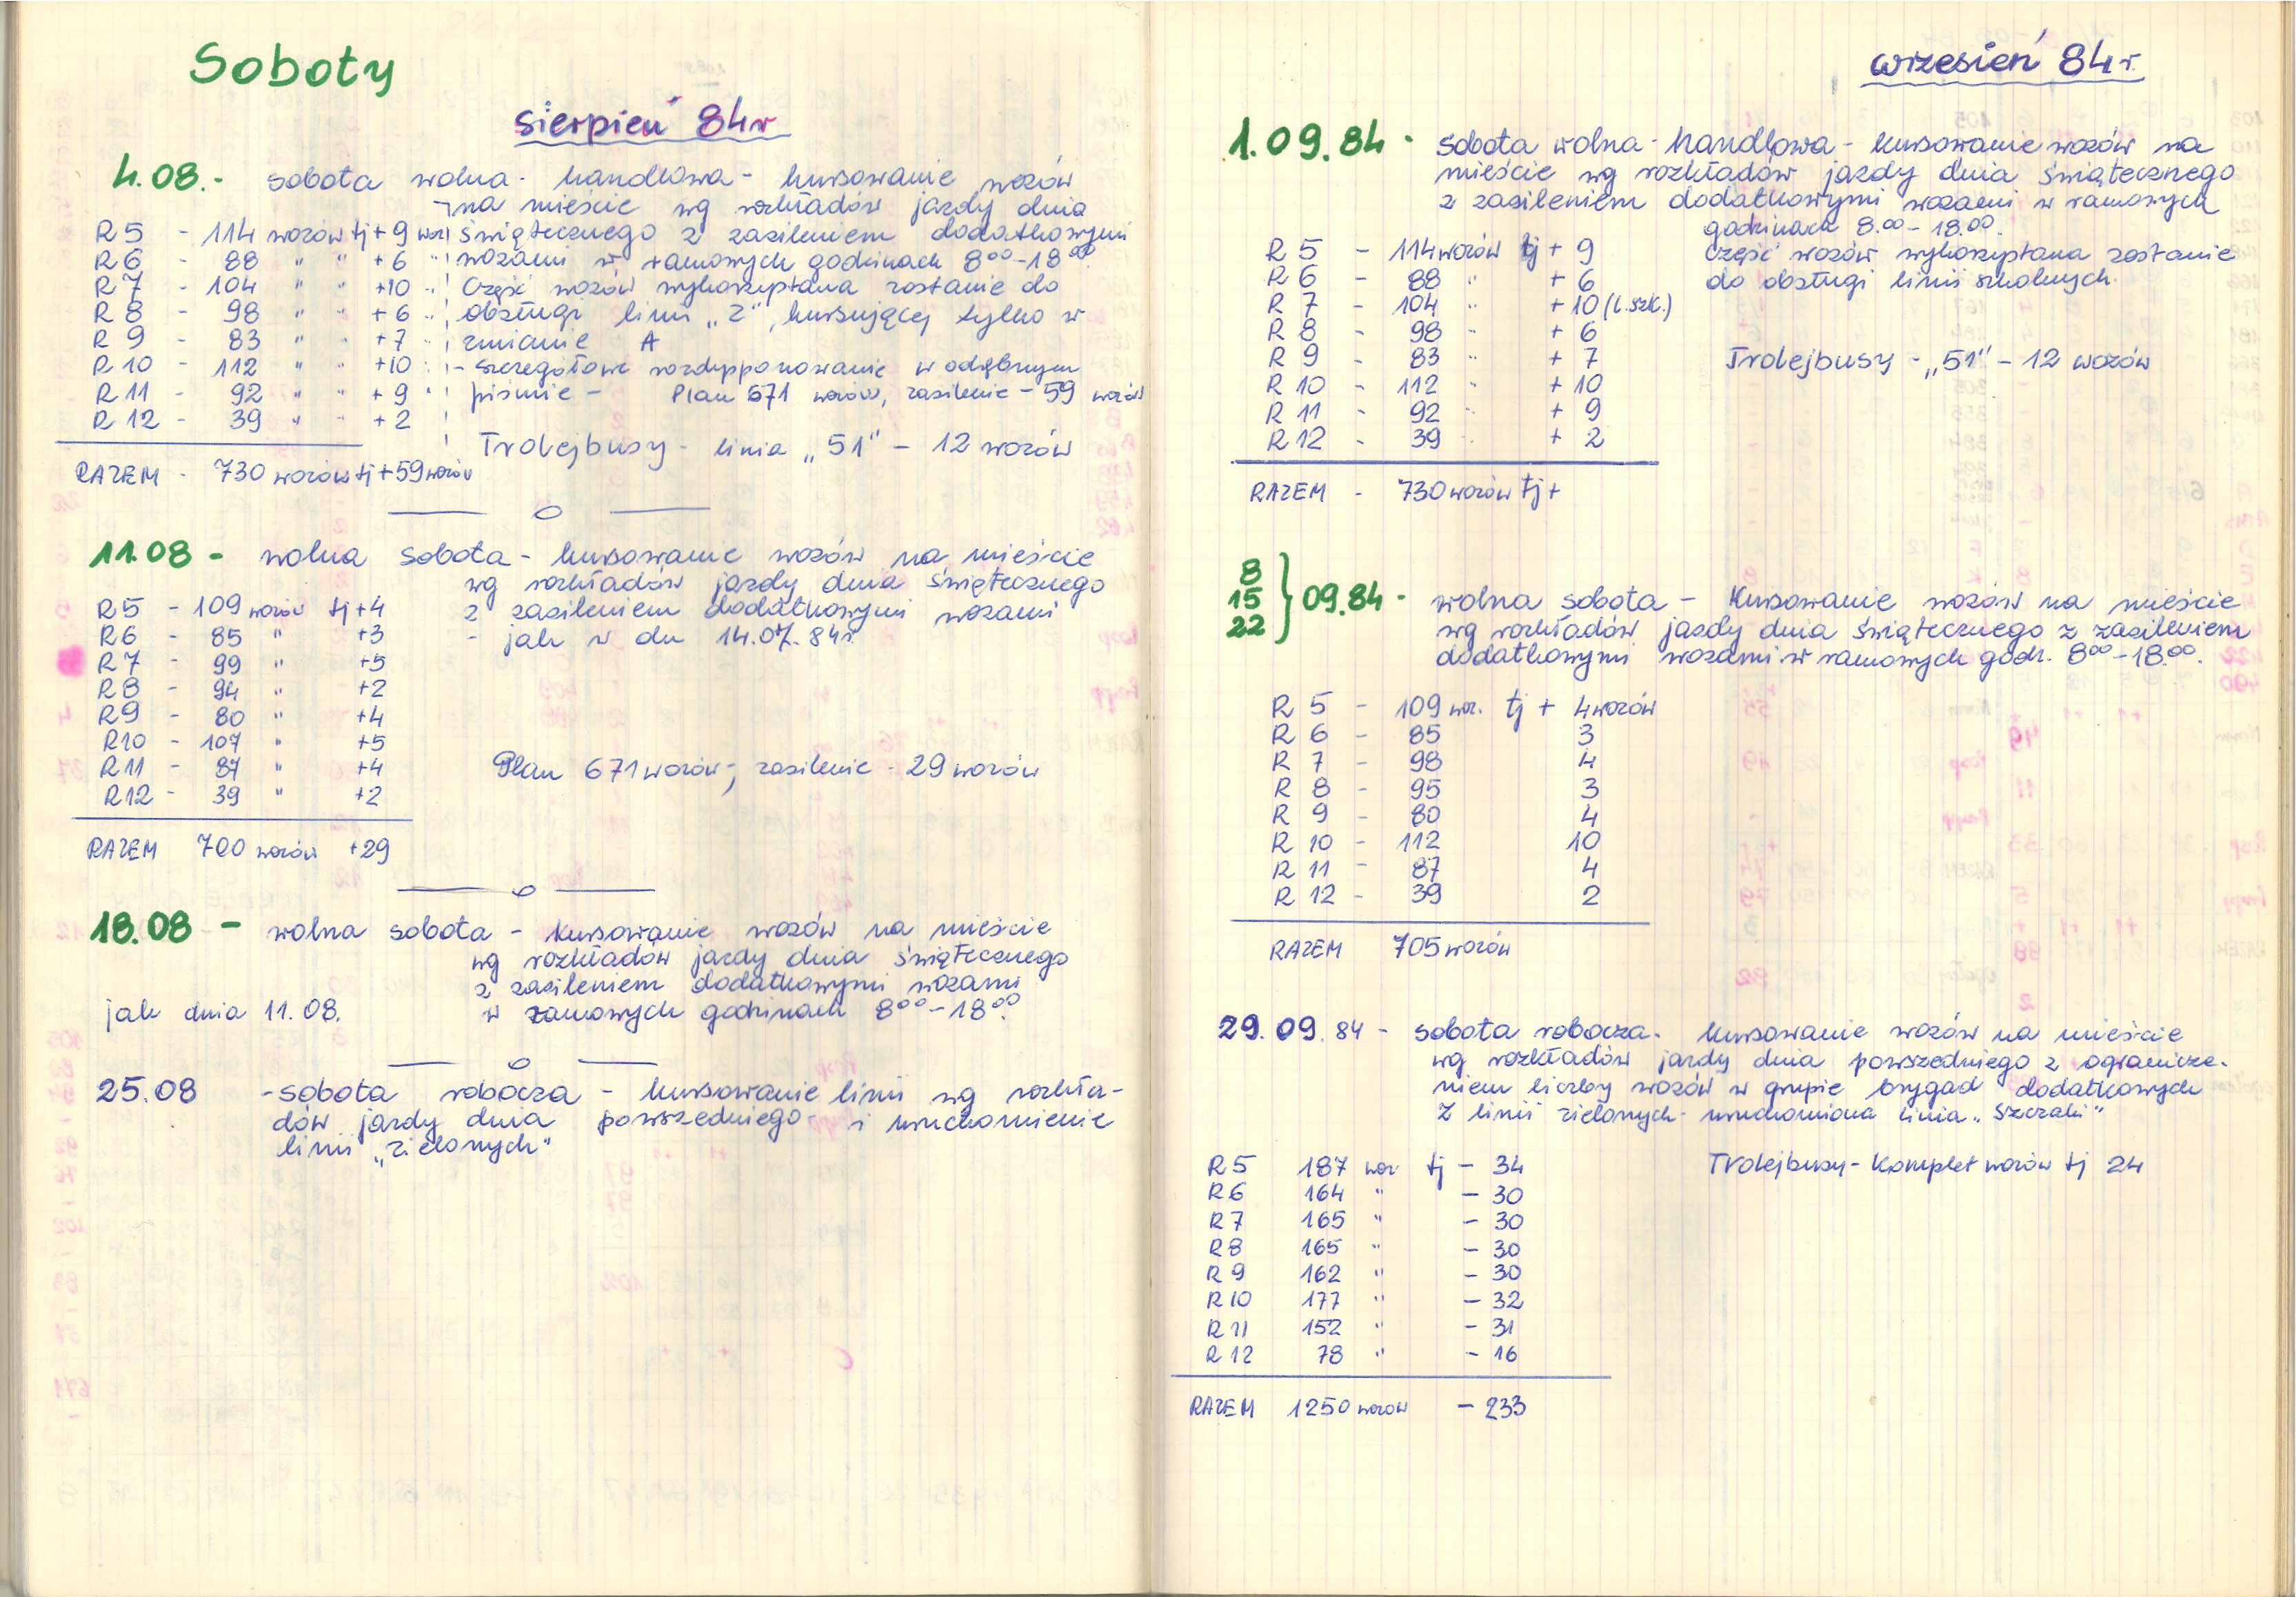 Soboty
sierpień 84r
4.08.- sobota wolna - handlowa - kursowanie wozów
na mieście wg rozkładów jazdy dnia
świątecznego z zasileniem dodatkowymi
wozami w ramowych godzinach 8⁰⁰-18⁰⁰
Część wozów wykorzystana zostanie do
obsługi linii „Z”, kursującej tylko w
zmianie A
- szczegółowe rozdysponowanie w odrębnym
piśmie - Plan 671 wozów, zasilenie - 59 wozów
Trolejbusy - linia „51” - 12 wozów
R5 - 114 wozów tj + 9 woz
R6 - 88 " " +6 "
R7 - 104 " " +10 "
R8 - 98 " " +6 "
R9 - 83 " " +7 "
R10 - 112 " " +10 "
R11 - 92 " " +9 "
R12 - 39 " " +2
RAZEM - 730 wozów tj +59 wozów
11.08 - wolna sobota - kursowanie wozów na mieście
wg rozkładów jazdy dnia świątecznego
z zasileniem dodatkowymi wozami
- jak w dn 14.07.84r.
R5 - 109 wozów tj +4
R6 - 85 " +3
R7 - 99 " +5
R8 - 94 " +2
R9 - 80 " +4
R10 - 107 " +5
R11 - 87 " +4
R12 - 39 " +2
Plan 671 wozów, zasilenie - 29 wozów
RAZEM 700 wozów +29
18.08 - wolna sobota - kursowanie wozów na mieście
wg rozkładów jazdy dnia świątecznego
z zasileniem dodatkowymi wozami
w ramowych godzinach 8⁰⁰-18⁰⁰.
jak dnia 11.08.
25.08 - sobota robocza - kursowanie linii wg rozkła-
dów jazdy dnia powszedniego - i uruchomienie
linii „zielonych”
wrzesień 84r.
1.09.84 - sobota wolna - handlowa - kursowanie wozów na
mieście wg rozkładów jazdy dnia świątecznego
z zasileniem dodatkowymi wozami w ramowych
godzinach 8.⁰⁰-18.⁰⁰.
Część wozów wykorzystana zostanie
do obsługi linii szkolnych.
Trolejbusy - „51” - 12 wozów
R 5 - 114 wozów tj + 9
R 6 - 88 " + 6
R 7 - 104 " + 10 (l. szk.)
R 8 - 98 " + 6
R 9 - 83 " + 7
R 10 - 112 " + 10
R 11 - 92 " + 9
R 12 - 39 " + 2
RAZEM - 730 wozów tj +
8
15
22
} 09.84 - wolna sobota - Kursowanie wozów na mieście
wg rozkładów jazdy dnia świątecznego z zasileniem
dodatkowymi wozami w ramowych godz. 8⁰⁰-18.⁰⁰.
R 5 - 109 woz. tj + 4 wozów
R 6 - 85 3
R 7 - 98 4
R 8 - 95 3
R 9 - 80 4
R 10 - 112 10
R 11 - 87 4
R 12 - 39 2
RAZEM 705 wozów
29.09.84 - sobota robocza - kursowanie wozów na mieście
wg rozkładów jazdy dnia powszedniego z ogranicze-
niem liczby wozów w grupie brygad dodatkowych
Z linii zielonych - uruchomiona linia „Szczaki”
Trolejbusy - Komplet wozów tj 24
R5 187 woz tj - 34
R6 164 " - 30
R7 165 " - 30
R8 165 " - 30
R9 162 " - 30
R10 177 " - 32
R11 152 " - 31
R12 78 " - 16
RAZEM 1250 wozów - 233